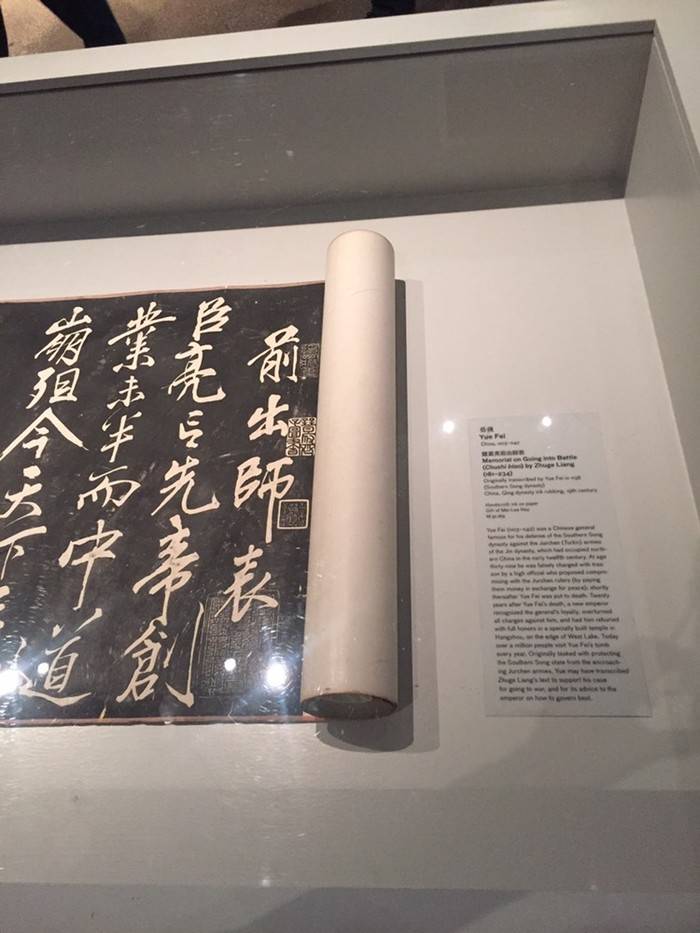 前出師表
臣亮言先帝創
業未半而中道
崩殂今天下
岳飛
Yue Fei
China, 1103–1142
諸葛亮前出師表
Memorial on Going into Battle
(Chushi biao) by Zhuge Liang
(181–234)
Originally transcribed by Yue Fei in 1138
(Southern Song dynasty)
China, Qing dynasty ink rubbing, 19th century
Handscroll: ink on paper
Gift of Mei-Lee
Yue Fei (1103–1142) was a Chinese general
famous for his defense of the Southern Song
dynasty against the Jurchen (Turkic) armies
of the Jin dynasty, which had occupied north-
ern China in the early twelfth century. At age
thirty-nine he was falsely charged with trea-
son by a high official who proposed compro-
mising with the Jurchen rulers (by paying
them money in exchange for peace); shortly
thereafter Yue Fei was put to death. Twenty
years after Yue Fei's death, a new emperor
recognized the general's loyalty, overturned
all charges against him, and had him reburied
with full honors in a specially built temple in
Hangzhou, on the edge of West Lake. Today
over a million people visit Yue Fei's tomb
every year. Originally tasked with protecting
the Southern Song state from the encroach-
ing Jurchen armies, Yue may have transcribed
Zhuge Liang's text to support his case
for going to war, and for its advice to the
emperor on how to govern best.